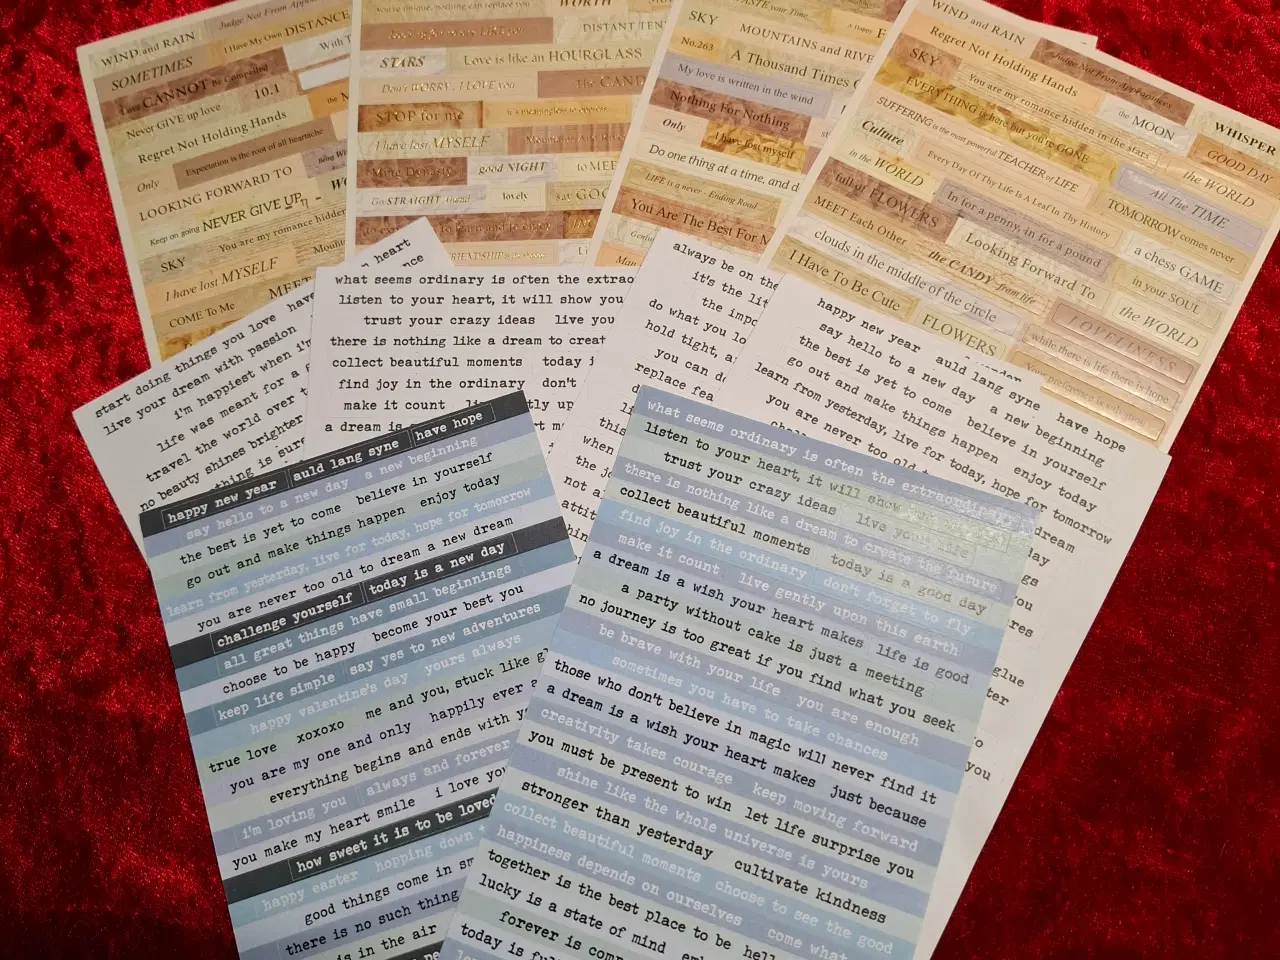 WIND and RAIN
Judge Not From
SOMETIMES
I Have My Own DISTANCE
Love CANNOT Be Compelled
With
Never GIVE up love
10.1
Regret Not Holding Hands
Only
Expectation is the root of all heartache
LOOKING FORWARD TO
Keep on going
NEVER GIVE UP
You are my romance hidden
SKY
I have lost MYSELF
COME To Me
MEET
you're unique, nothing can replace you
WORTH
DISTANT
STARS
Love is like an HOURGLASS
Don't WORRY, I LOVE you
The
STOP for me
it's meaningless to oppress
I have lost MYSELF
Ming Dynasty
good NIGHT
to MEET
Go STRAIGHT Ahead
lovely
say
SKY
MOUNTAINS and
No.263
A Thousand Times
My love is written in the wind
Nothing For Nothing
Only
I have lost myself
Do one thing at a time, and d
LIFE is a never - Ending Road
You Are The Best For
WIND and RAIN
Regret Not Holding Hands
Judge Not From Appearances
SKY
You are my romance hidden in the stars
the MOON
WHISPER
EVERYTHING is here but you're GONE
GOOD DAY
SUFFERING is the most powerful TEACHER of LIFE
the WORLD
Culture
Every Day Of Thy Life Is A Leaf In Thy History
All The TIME
in the WORLD
In for a penny, in for a pound
TOMORROW comes never
full of FLOWERS
Looking Forward To
a chess GAME
MEET Each Other
the CANDY from life
in your SOUL
clouds in the middle of the circle
LOVELINESS
the WORLD
I Have To Be Cute
FLOWERS
while there is life there is hope
Your preference is salvation
heart
start doing things you love have
live your dream with passion
i'm happiest when i'm
life was meant for a
travel the world over
no beauty shines brighter
what seems ordinary is often the extrao
listen to your heart, it will show you
trust your crazy ideas live you
there is nothing like a dream to creat
collect beautiful moments today i
find joy in the ordinary don't
make it count
a dream is
always be on the
it's the lit
the impo
do what you lo
hold tight, a
you can d
replace fea
this
when
the jo
not a
attit
happy new year auld lang syne have hope
say hello to a new day a new beginning
the best is yet to come believe in yourself
go out and make things happen enjoy today
learn from yesterday, live for today, hope for tomorrow
you are never too old t dream
happy new year auld lang syne have hope
say hello to a new day a new beginning
the best is yet to come believe in yourself
go out and make things happen enjoy today
learn from yesterday, live for today, hope for tomorrow
you are never too old to dream a new dream
challenge yourself today is a new day
all great things have small beginnings
choose to be happy become your best you
keep life simple say yes to new adventures
happy valentine's day yours always
true love xoxoxo me and you, stuck like g
you are my one and only happily ever a
everything begins and ends with y
i'm loving you always and forever
you make my heart smile i love yo
how sweet it is to be loved
happy easter hopping down
good things come in sm
there is no such thing
is in the air
what seems ordinary is often the extraordinary
listen to your heart, it will show
trust your crazy ideas live your life
there is nothing like a dream to create the future
collect beautiful moments today is a good day
find joy in the ordinary don't forget to fly
make it count live gently upon this earth
a dream is a wish your heart makes life is good
a party without cake is just a meeting
no journey is too great if you find what you seek
be brave with your life you are enough
sometimes you have to take chances
those who don't believe in magic will never find it
a dream is a wish your heart makes just because
creativity takes courage keep moving forward
you must be present to win let life surprise you
shine like the whole universe is yours
stronger than yesterday cultivate kindness
collect beautiful moments choose to see the good
happiness depends on ourselves come what
together is the best place to be
lucky is a state of mind
forever is com
today is fu